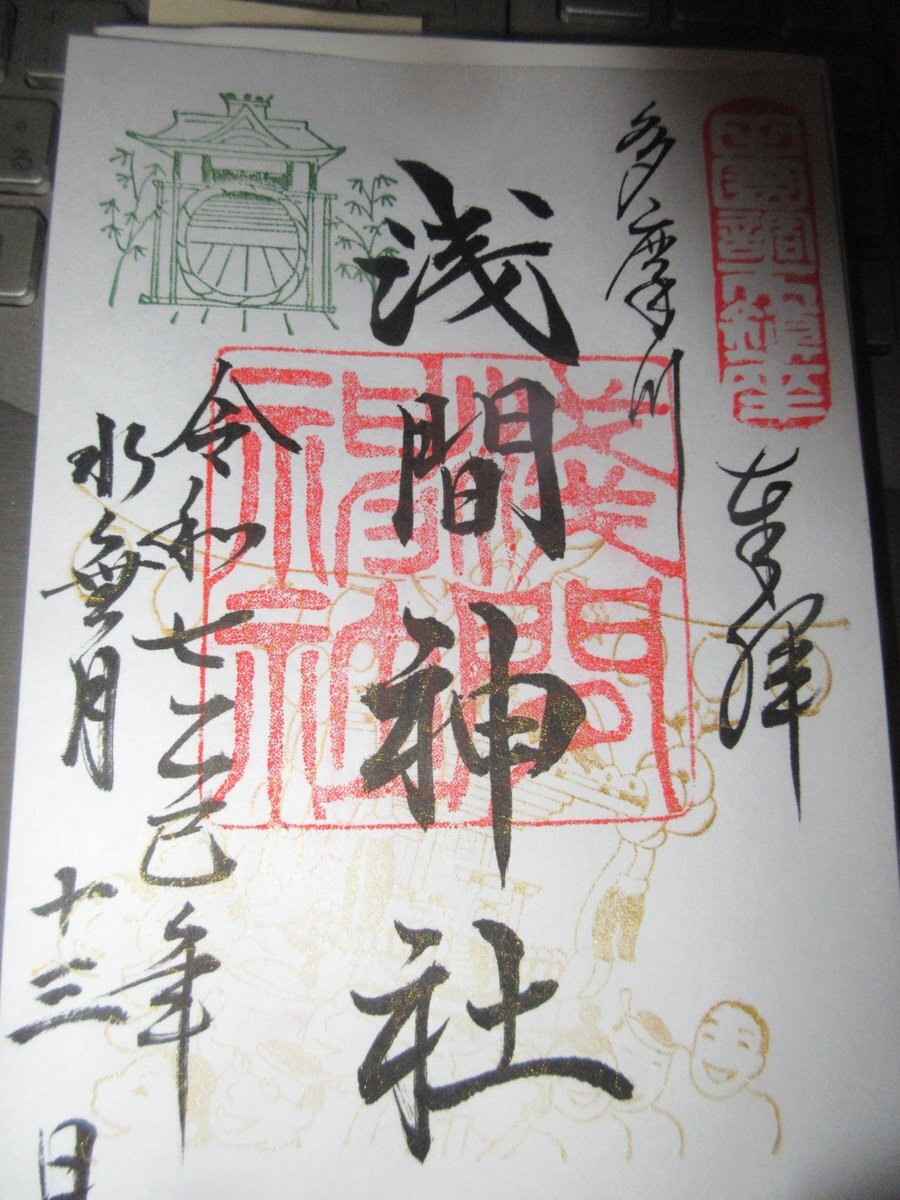 奉拝
多摩川
浅間神社
令和七乙巳年
水無月
十三日
る